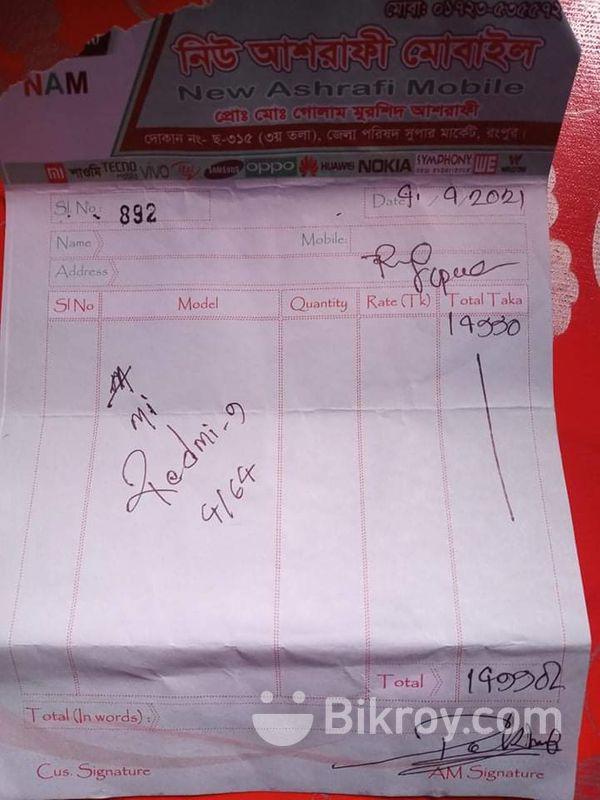 মোবাঃ ০১৭২৩-৫৩৫৫৭২
নিউ আশরাফী মোবাইল
NAM
New Ashrafi Mobile
প্রোঃ মোঃ গোলাম মুরশিদ আশরাফী
দোকান নং- ছ-৩১৫ (৩য় তলা), জেলা পরিষদ সুপার মার্কেট, রংপুর।
mi শাওমি TECNO vivo itel SAMSUNG oppo HUAWEI NOKIA SYMPHONY WE
Sl No.: 892 Date 9/9/2021
Name Mobile:
Address
Sl No Model Quantity Rate (Tk) Total Taka
mi
Redmi-9
4/64
Total
Total (In words) :
Bikroy.com
Cus. Signature AM Signature